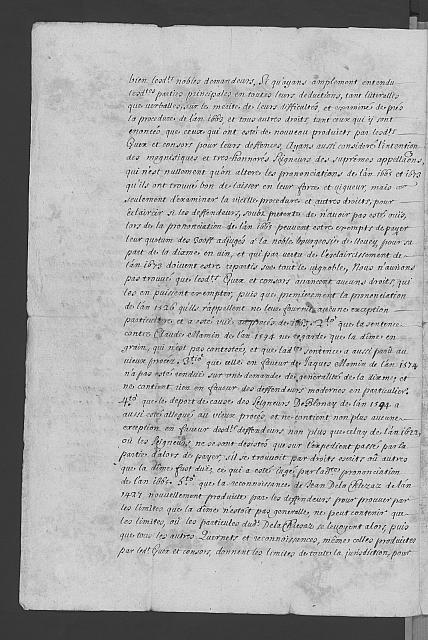 bien lesd.ts nobles demandeurs, Si qu'ayans amplement entendu
lesd.tes parties principales en toutes leurs deductions, tant litterelles
que verballes, sur le merite de leurs difficultés, et examiné de prés
la procedure de l'an 1663 et tous autres droits tant ceux qui y sont
enoncés que ceux qui ont esté de nouveau produicts par lesd.ts
Quex et consors pour leurs deffences, Ayans aussi consideré l'intention
des magnifiques et tres-honnorés Seigneurs des suprêmes appellãons,
qui n'est nullement qu'on altere les prononciations de l'an 1663 et 1673
qu'ils ont trouvé bon de laisser en leur force et vigueur, mais
seulement d'examiner la vieille procedure et autres droits, pour
éclaircir si les deffendeurs, soubz pretexte de n'avoir pas estés ouis,
lors de la prononciation de l'an 1663 peuvent estre exempts de payer
leur quotum des adjugés à la noble bourgeoisie de pour sa
part de la disme en vin, et qui par vertu de l'esclaircissement de
l'an 1673 doivent estre repartis sur tout le vignoble, Nous n'avons
pas trouvé que lesd.ts Quex et consors avancent aucuns droits, qui
les en puissent exempter, puis que premierement la prononciation
de l'an 1526 qu'ils rappellent ne leur fournit aucune exception
particuliere, et a esté au procés de 1663. 2.do que la sentence
contre Claude Mamin de l'an 1594 ne regarde que la dîme en
grain, qui n'est pas contestée, et que lad.te sentence a aussi paru au
vieux procés. 3.tio que celle en faveur de Jaques Mamin de l'an 1574
n'a pas esté rendue sur une demande de generalité de la disme, et
ne contient rien en faveur des deffendeurs modernes en particulier.
4.to que le deport de cause des Seigneurs De Blonay de l'an 1594 a
aussi esté allegué au vieux procés, et ne contient non plus aucune
exception en faveur desd.ts deffendeurs non plus que celuy de l'an 1622,
où les Seigneurs ne se sont desistés que sur l'expedient passé par la
partie d'alors de payer, s'il se trouvoit par droits escrits ou autres
que la dîme fust duë, ce qui a esté jugé par lad.te prononciation
de l'an 1663. 5.to que la reconnoissance de Jean De la Chiesaz de l'an
1421 nouvellement produicte par les deffendeurs pour prouver par
les limites que la dîme n'estoit pas generalle, ne peut contenir que
les limites, où les particules dud.t De la Chiesaz se levoyent alors, puis
que tous les autres Quernets et reconnoissances, mêmes celles produictes
par led.t Quex et consors, donnent les limites de toute la jurisdiction, pour